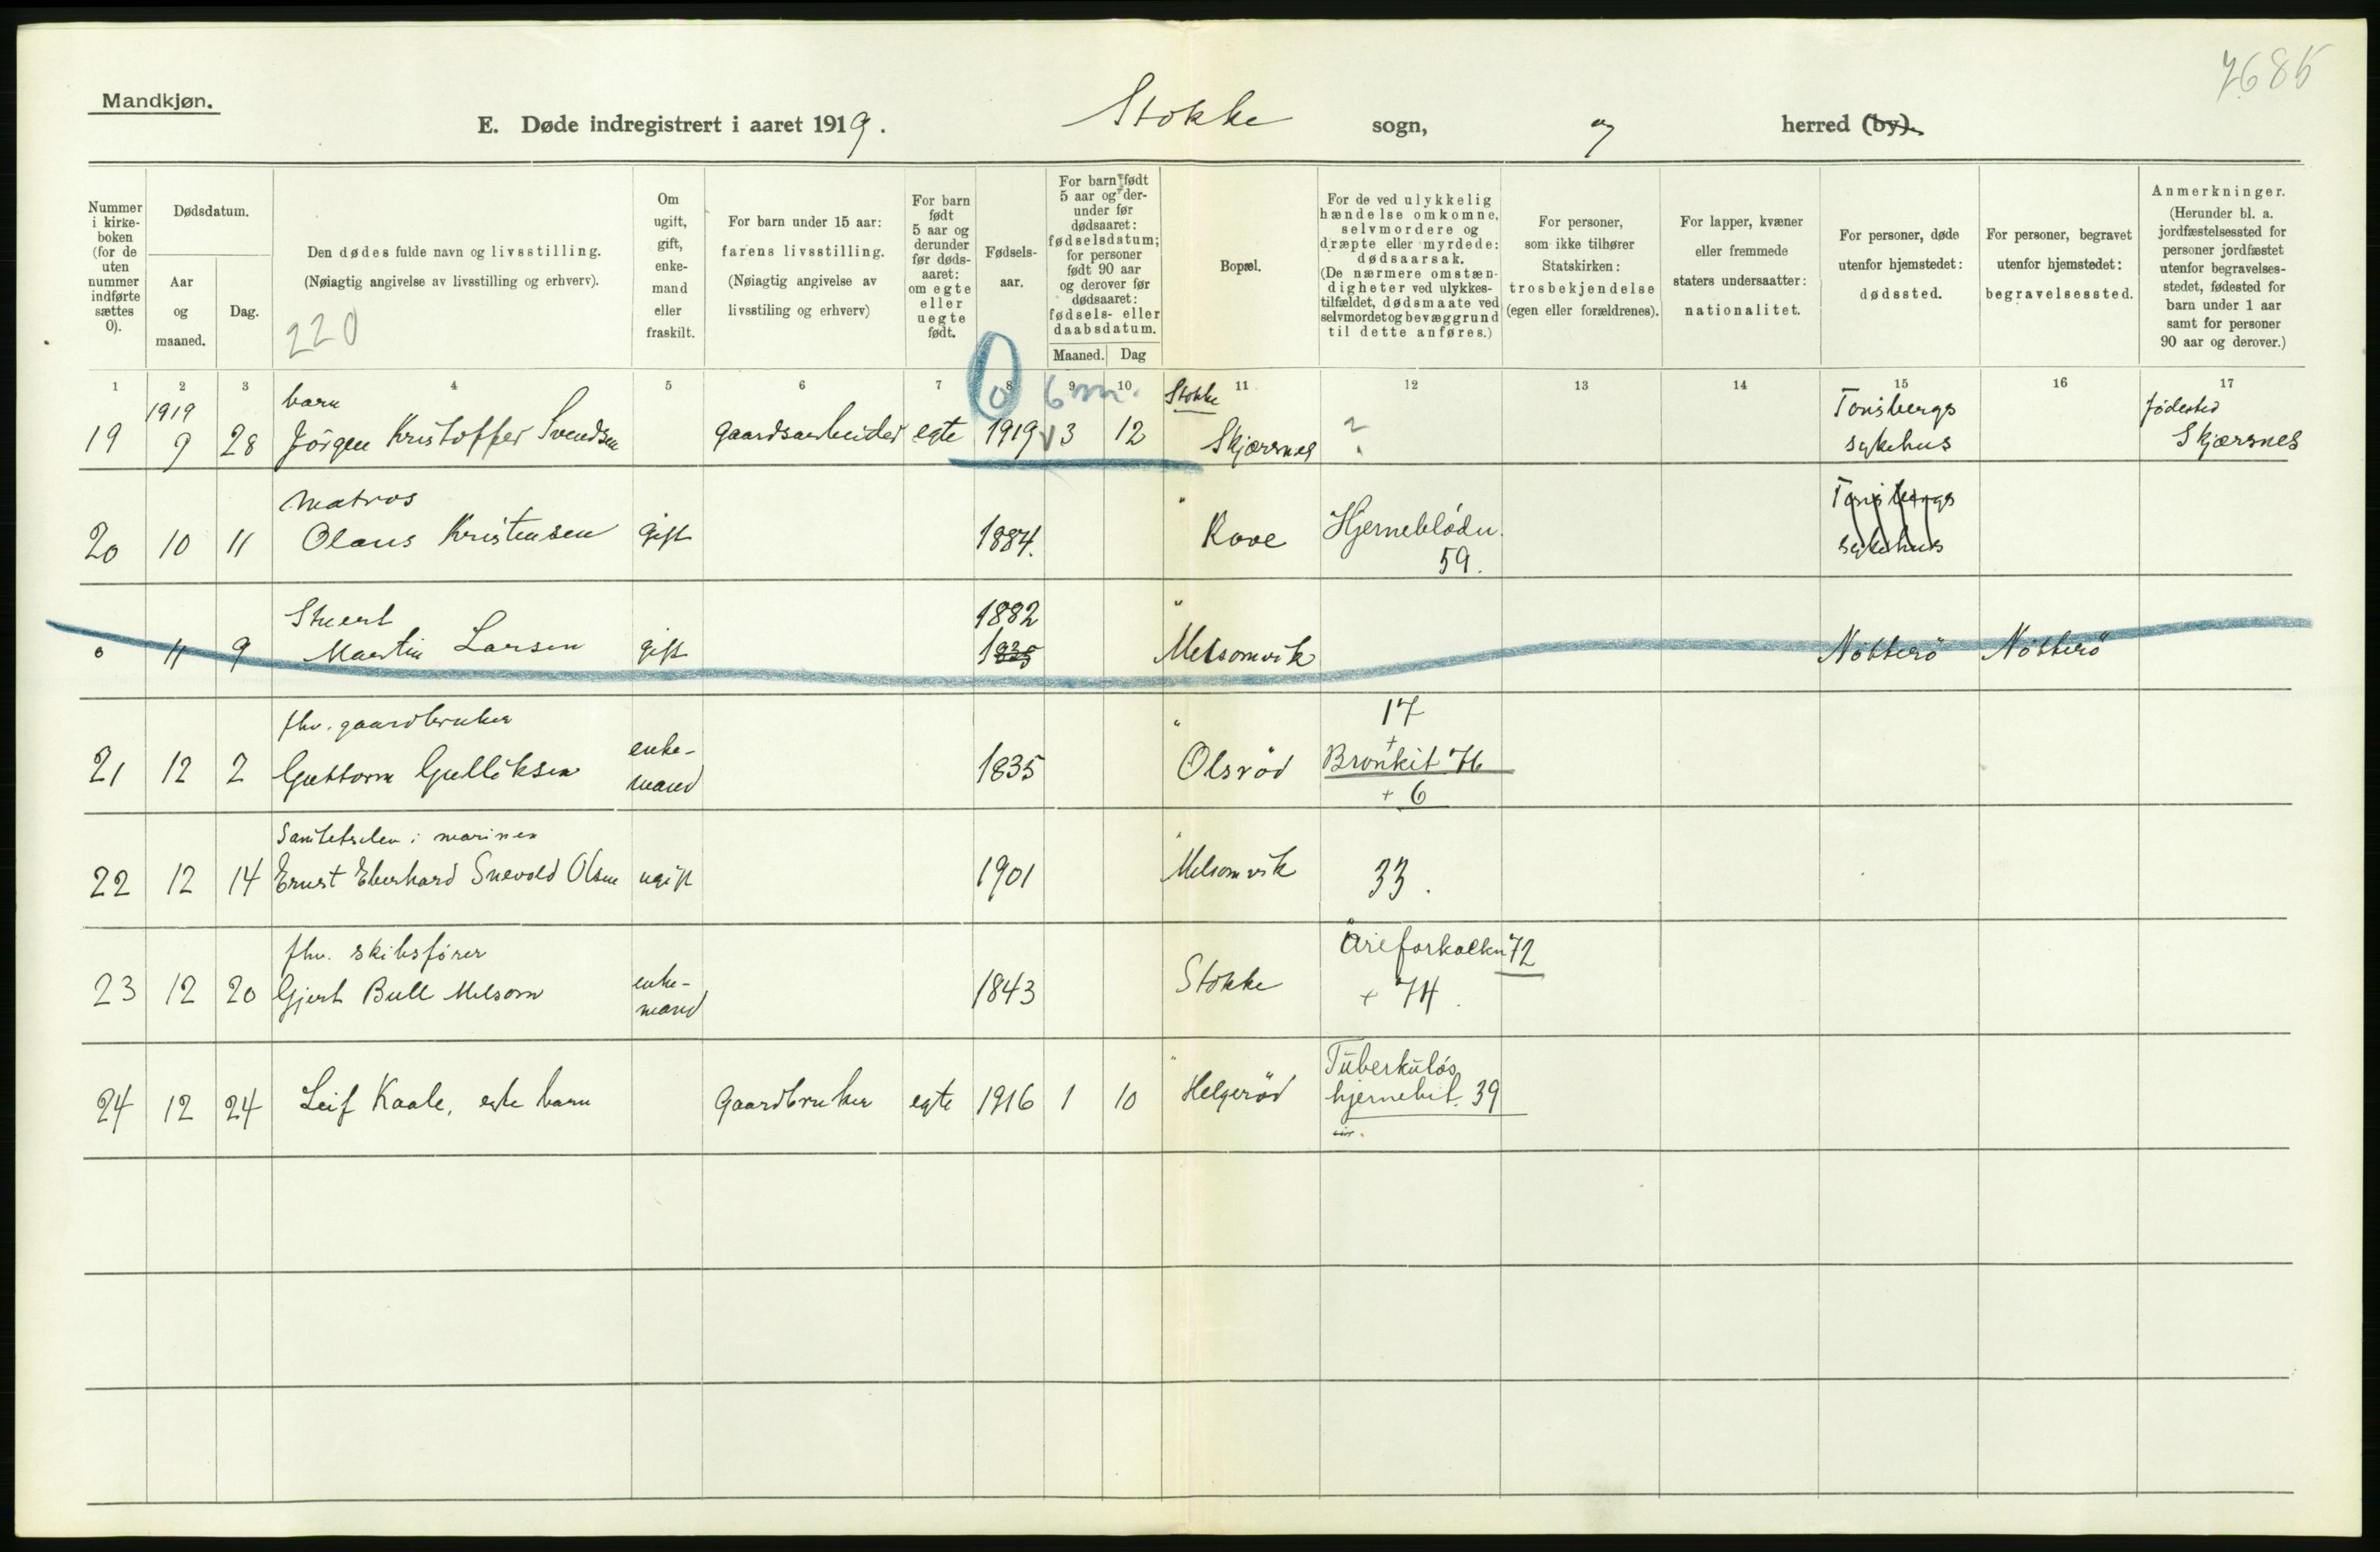 7685
Mandkjøn.
E. Døde indregistrert i aaret 1919. Stokke sogn, og herred (by).
Nummer i kirke-boken (for de uten nummer indførte sættes 0).
Dødsdatum.
Aar og maaned.
Dag.
Den dødes fulde navn og livsstilling.
(Nøiagtig angivelse av livsstilling og erhverv).
220
Om ugift, gift, enke-mand eller fraskilt.
For barn under 15 aar:
farens livsstilling.
(Nøiagtig angivelse av livsstiling og erhverv)
For barn født 5 aar og derunder før døds-aaret: om egte eller uegte født.
Fødsels-aar.
For barn født 5 aar og der-under før dødsaaret: fødselsdatum; for personer født 90 aar og derover før dødsaaret: fødsels- eller daabsdatum.
Maaned. Dag
Bopæl.
For de ved ulykkelig hændelse omkomne, selvmordere og dræpte eller myrdede: dødsaarsak.
(De nærmere omstæn-digheter ved ulykkes-tilfældet, dødsmaate ved selvmordet og bevæggrund til dette anføres.)
For personer, som ikke tilhører Statskirken: trosbekjendelse (egen eller forældrenes).
For lapper, kvæner eller fremmede staters undersaatter: nationalitet.
For personer, døde utenfor hjemstedet: dødssted.
For personer, begravet utenfor hjemstedet: begravelsessted.
Anmerkninger.
(Herunder bl. a. jordfæstelsessted for personer jordfæstet utenfor begravelses-stedet, fødested for barn under 1 aar samt for personer 90 aar og derover.)
1 2 3 4 5 6 7 8 9 10 11 12 13 14 15 16 17
0 6 m.
1919 barn Stokke Tønsbergs fødested
19 9 28 Jörgen Kristoffer Svendsen gaardsarbeider egte 1919 3 12 Skjærsnes ? sykehus Skjærsnes
Matros " Tønsbergs
20 10 11 Olaus Kristensen gift 1884. Rove Hjerneblödn. sykehus
59.
Stuert 1882 "
0 11 9 Martin Larsen gift 1835 Melsomvik Nötterö Nötterö
fhv. gaardbruker " 17
+
21 12 2 Guttorm Gullöksen enke-mand 1835 Olsröd Bronkit 76
+ 6
Sanitetselev i marinen "
22 12 14 Ernst Eberhard Snevold Olsen ugift 1901 Melsomvik 33.
fhv. skibsförer Åreforkalkn 72
23 12 20 Gjert Bull Melsom enke-mand 1843 Stokke + 74.
" Tuberkuløs
24 12 24 Leif Kaale, egte barn Gaardbruker egte 1916 1 10 Helgeröd hjernebet. 39